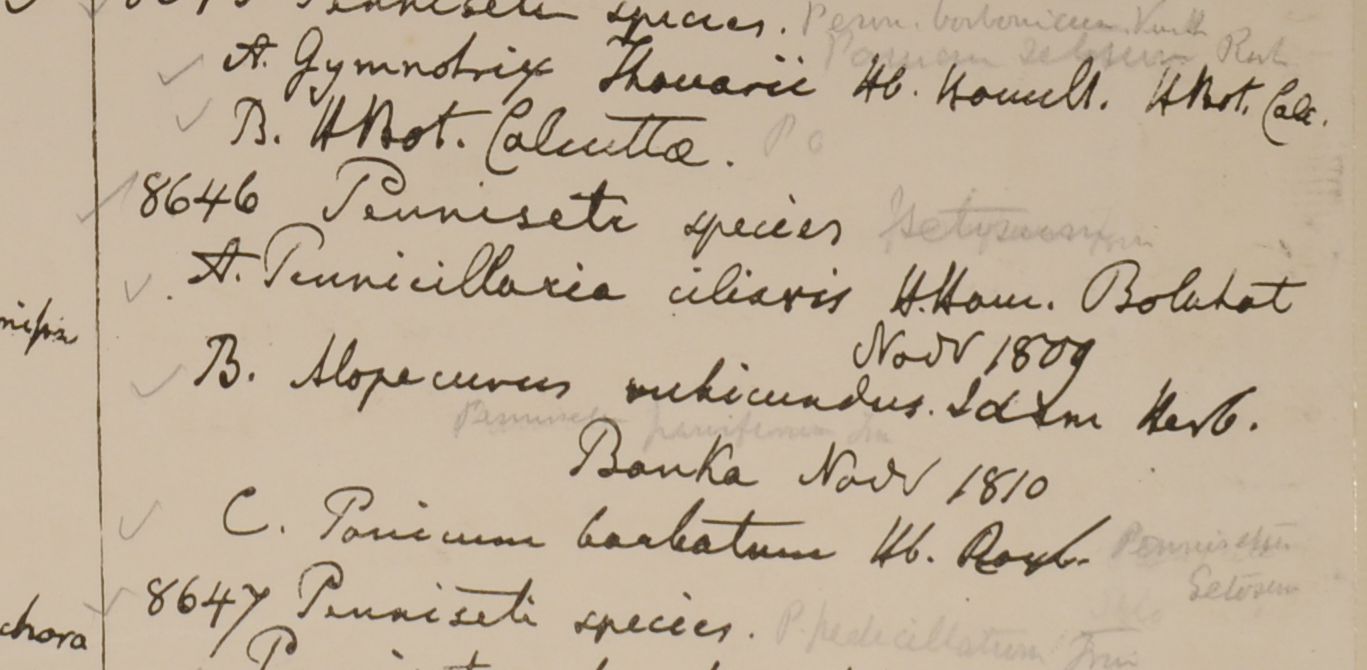 Penniseti species. Penn. borbonicum Kunth
A. Gymnotrix Thouarii Hb. Hamilt. HBot. Calc.
B. HBot. Calcutta.
8646 Penniseti species
A. Pennicillaria ciliaris H.Ham. Bolahat
Novr 1809
B. Alopecurus rubicundus. Idem Herb.
Banka Novr 1810
C. Panicum barbatum Hb. Roxb. Pennisetum
Setosum
8647 Penniseti species. P. pedicellatum Trin
chora